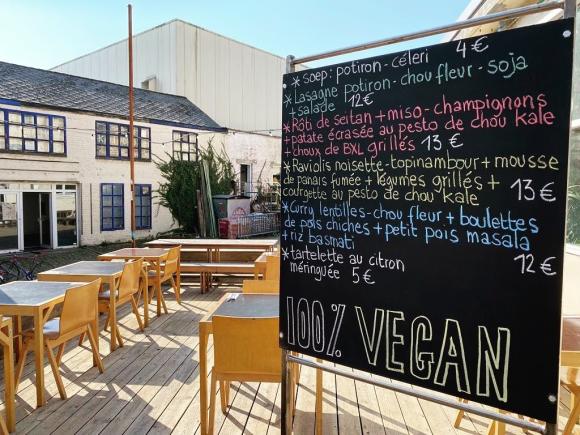 * soep: potiron - céleri 4€
* Lasagne potiron - chou fleur - soja
+ salade 12€
* Rôti de seitan + miso - champignons
+ patate écrasée au pesto de chou kale
+ choux de BXL grillés 13€
* Raviolis noisette - topinambour + mousse
de panais fumée + légumes grillés +
courgette au pesto de chou kale 13€
* Curry lentilles - chou fleur + boulettes
de pois chiches + petit pois masala
+ riz basmati 12€
* tartelette au citron
méringuée 5€
100% VEGAN